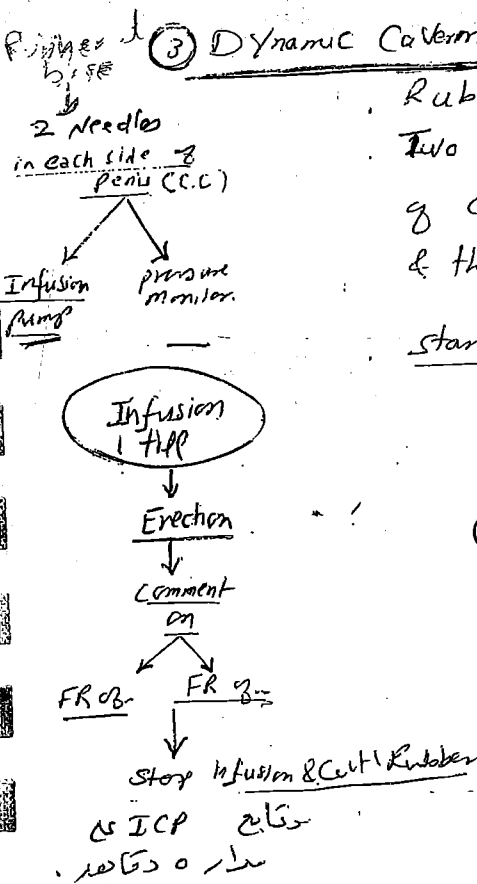 ③ Dynamic Cavern
Rub
2 Needles
in each side of
Penis (C.C)
Two
of C
& th
Infusion
Pump
pressure
monitor.
Stan
Infusion
till
Erection
Comment
on
FR of-
FR of--
Stop Infusion & Cut Rubber
ICP